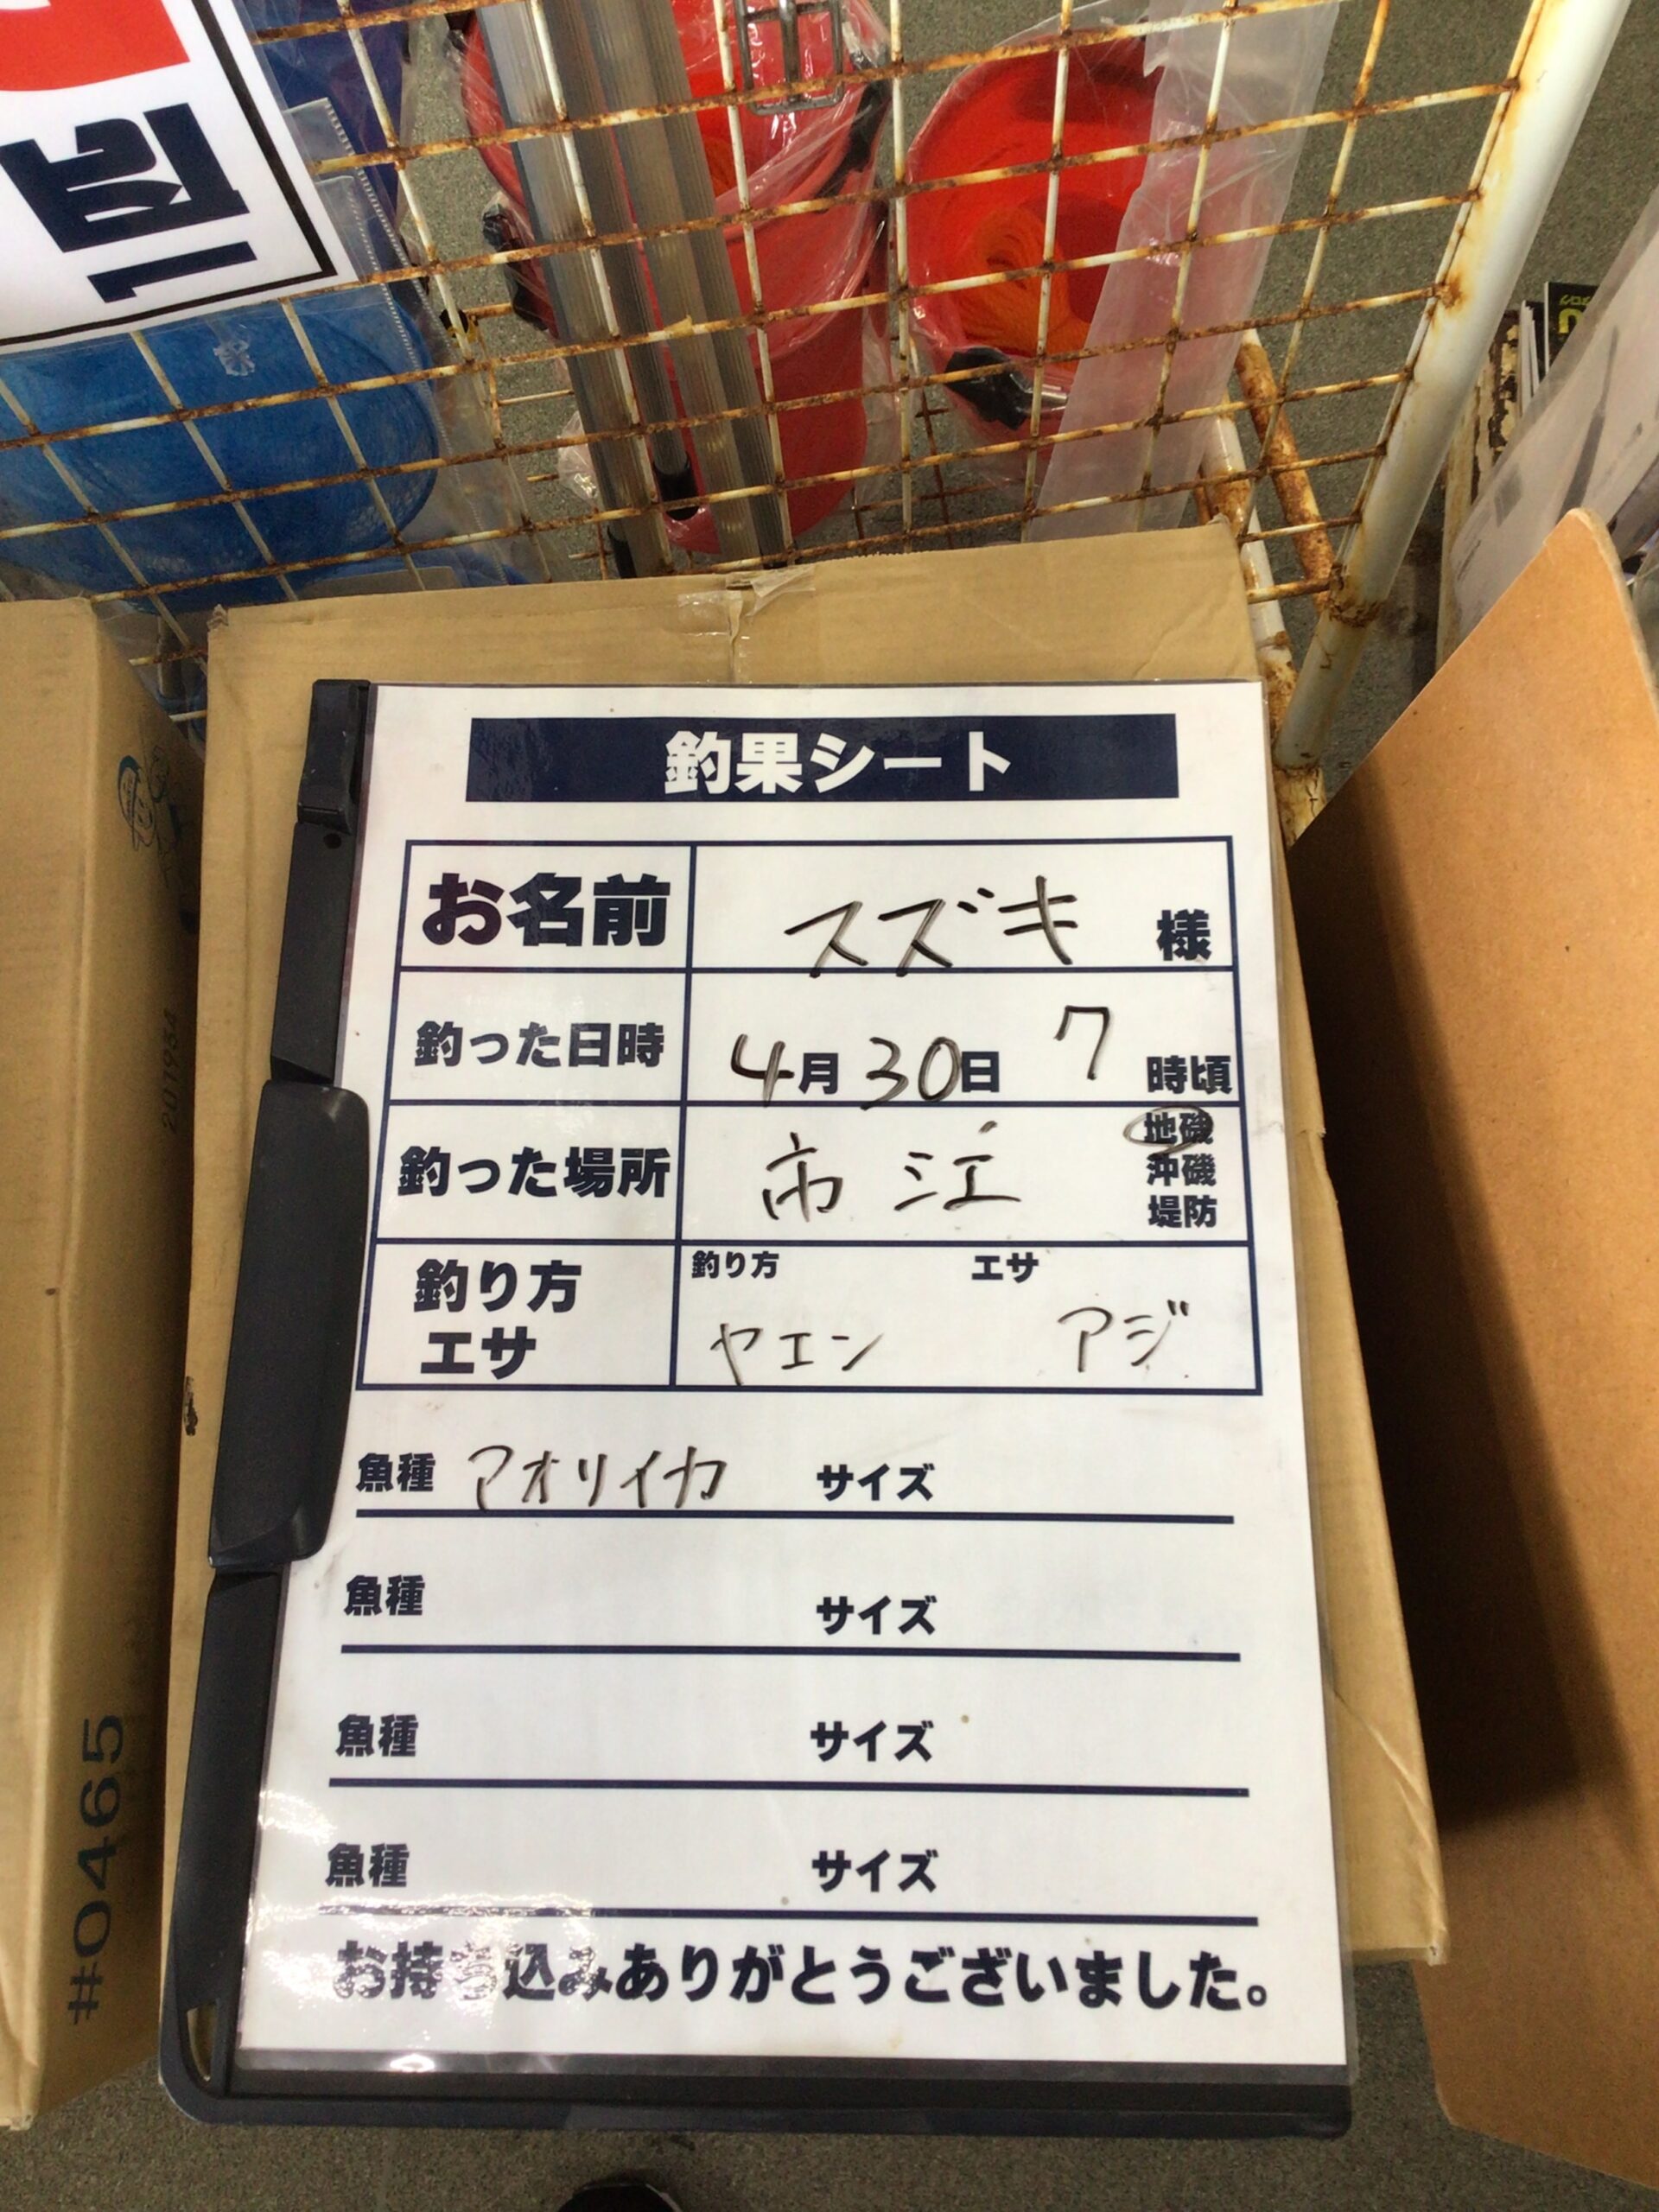 釣果シート
お名前 スズキ 様
釣った日時 4月30日 7時頃
釣った場所 市江 地磯
沖磯
堤防
釣り方 エサ
釣り方 ヤエン エサ アジ
魚種 アオリイカ サイズ
魚種 サイズ
魚種 サイズ
魚種 サイズ
お持ち込みありがとうございました。
#0465
201934